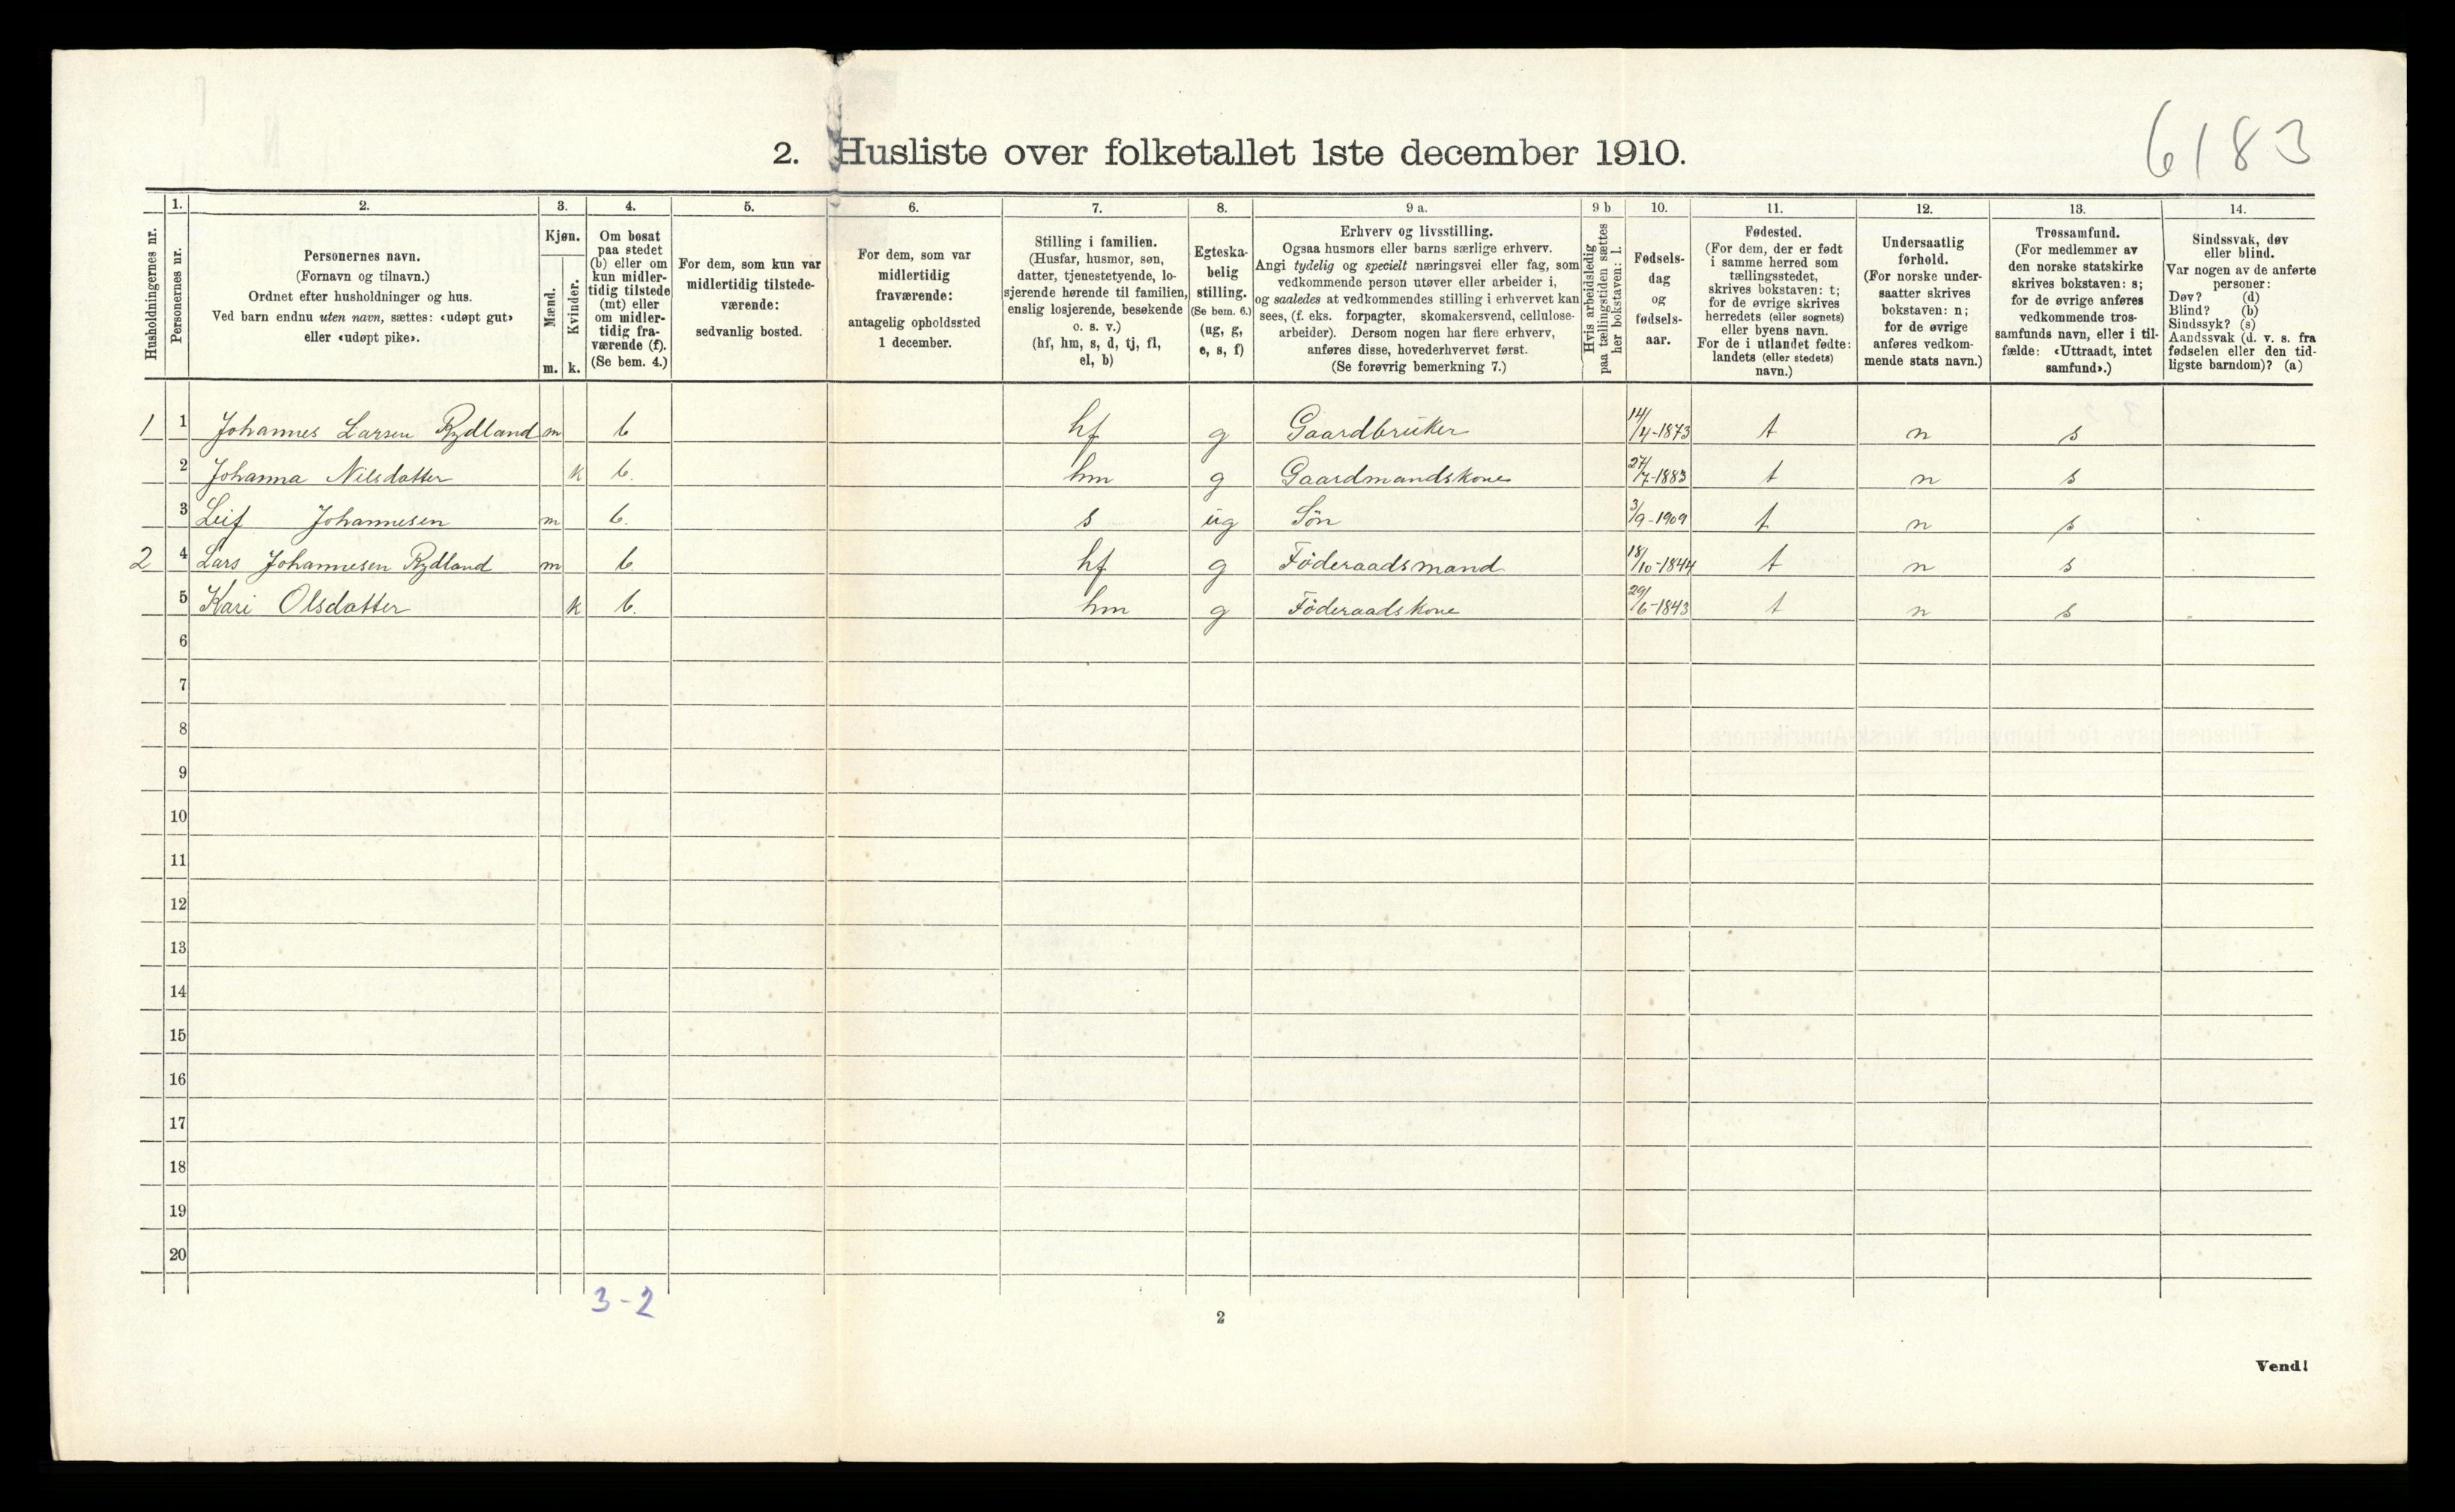 6183
2. Husliste over folketallet 1ste december 1910.
Husholdningernes nr.
1.
Personernes nr.
2.
Personernes navn.
(Fornavn og tilnavn.)
Ordnet efter husholdninger og hus.
Ved barn endnu uten navn, sættes: «udøpt gut»
eller «udøpt pike».
3.
Kjøn.
Mænd.
Kvinder.
m. k.
4.
Om bosat
paa stedet
(b) eller om
kun midler-
tidig tilstede
(mt) eller
om midler-
tidig fra-
værende (f).
(Se bem. 4.)
5.
For dem, som kun var
midlertidig tilstede-
værende:
sedvanlig bosted.
6.
For dem, som var
midlertidig
fraværende:
antagelig opholdssted
1 december.
7.
Stilling i familien.
(Husfar, husmor, søn,
datter, tjenestetyende, lo-
sjerende hørende til familien,
enslig losjerende, besøkende
o. s. v.)
(hf, hm, s, d, tj, fl,
el, b)
8.
Egteska-
belig
stilling.
(Se bem. 6.)
(ug, g,
e, s, f)
9 a.
Erhverv og livsstilling.
Ogsaa husmors eller barns særlige erhverv.
Angi tydelig og specielt næringsvei eller fag, som
vedkommende person utøver eller arbeider i,
og saaledes at vedkommendes stilling i erhvervet kan
sees, (f. eks. forpagter, skomakersvend, cellulose-
arbeider). Dersom nogen har flere erhverv,
anføres disse, hovederhvervet først.
(Se forøvrig bemerkning 7.)
9 b
Hvis arbeidsledig
paa tællingstiden sættes
her bokstaven: l.
10.
Fødsels-
dag
og
fødsels-
aar.
11.
Fødested.
(For dem, der er født
i samme herred som
tællingsstedet,
skrives bokstaven: t;
for de øvrige skrives
herredets (eller sognets)
eller byens navn.
For de i utlandet fødte:
landets (eller stedets)
navn.)
12.
Undersaatlig
forhold.
(For norske under-
saatter skrives
bokstaven: n;
for de øvrige
anføres vedkom-
mende stats navn.)
13.
Trossamfund.
(For medlemmer av
den norske statskirke
skrives bokstaven: s;
for de øvrige anføres
vedkommende tros-
samfunds navn, eller i til-
fælde: «Uttraadt, intet
samfund».)
14.
Sindssvak, døv
eller blind.
Var nogen av de anførte
personer:
Døv? (d)
Blind? (b)
Sindssyk? (s)
Aandssvak (d. v. s. fra
fødselen eller den tid-
ligste barndom)? (a)
1 1 Johannes Larsen Rydland m b hf g Gaardbruker 14/4-1873 t n s
2 Johanna Nilsdatter k b. hm g Gaardmandskone 27/7-1883 t n s
3 Leif Johannesen m b. s ug Søn 3/9-1909 t n s
2 4 Lars Johannesen Rydland m b. hf g Föderaadsmand 18/10-1844 t n s
5 Kari Olsdatter k b. hm g Föderaadskone 29/6-1843 t n s
6
7
8
9
10
11
12
13
14
15
16
17
18
19
20
3-2
2
Vend!